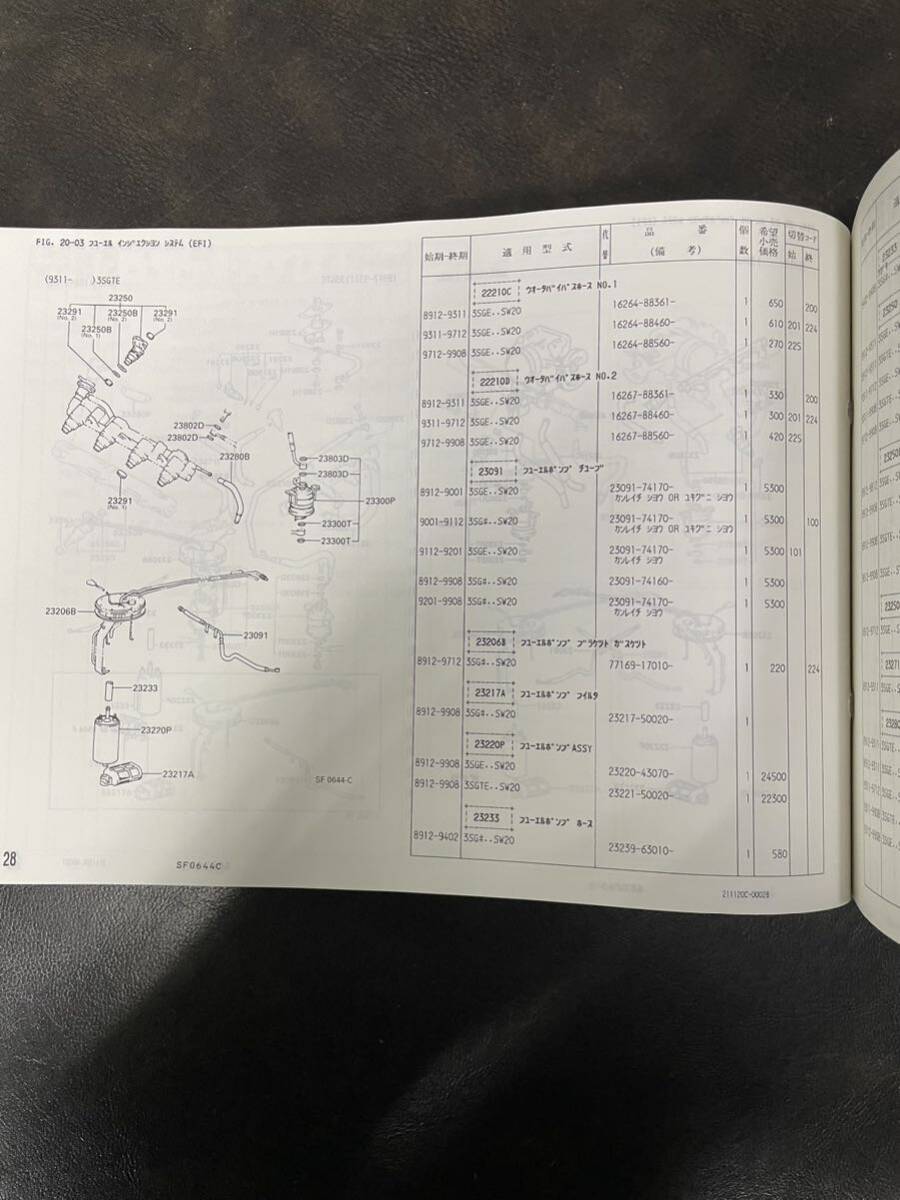 FIG. 20-03 フユーエル インジエクシヨン システム (EFI)
(9311-      )3SGTE
23250
23291 (No. 2)
23250B (No. 2)
23291 (No. 2)
23250B (No. 1)
23802D
23802D
23280B
23291 (No. 1)
23803D
23803D
23300P
23300T
23300T
23206B
23091
23233
23220P
23217A
SF 0644-C
28
SF0644C
始期-終期 適用型式 代替 品番 (備考) 個数 希望小売価格 切替コード 始 終
22210C ウオータバイパスホース NO.1
8912-9311 3SGE..SW20 16264-88361- 1 650 200
9311-9712 3SGE..SW20 16264-88460- 1 610 201 224
9712-9908 3SGE..SW20 16264-88560- 1 270 225
22210D ウオータバイパスホース NO.2
8912-9311 3SGE..SW20 16267-88361- 1 330 200
9311-9712 3SGE..SW20 16267-88460- 1 300 201 224
9712-9908 3SGE..SW20 16267-88560- 1 420 225
23091 フユーエルポンプ チユーブ
8912-9001 3SGE..SW20 23091-74170- 1 5300
カンレイチ シヨウ OR ユキグニ シヨウ
9001-9112 3SG#..SW20 23091-74170- 1 5300 100
カンレイチ シヨウ OR ユキグニ シヨウ
9112-9201 3SGE..SW20 23091-74170- 1 5300 101
カンレイチ シヨウ
8912-9908 3SG#..SW20 23091-74160- 1 5300
9201-9908 3SG#..SW20 23091-74170- 1 5300
カンレイチ シヨウ
23206B フユーエルポンプ ブラケツト ガスケツト
8912-9712 3SG#..SW20 77169-17010- 1 220 224
23217A フユーエルポンプ フイルタ
8912-9908 3SG#..SW20 23217-50020- 1
23220P フユーエルポンプASSY
8912-9908 3SGE..SW20 23220-43070- 1 24500
8912-9908 3SGTE..SW20 23221-50020- 1 22300
23233 フユーエルポンプ ホース
8912-9402 3SG#..SW20 23239-63010- 1 580
211120C-00028